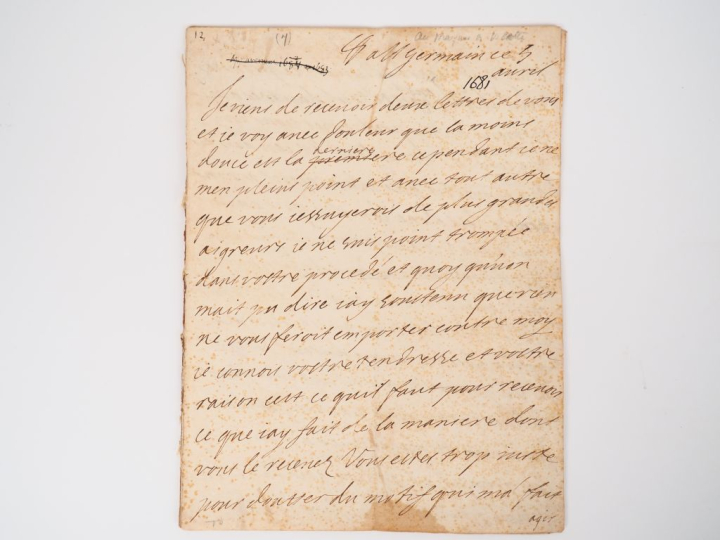 12 (7)
a St Germain ce 5
avril
1681
Je viens de recevoir deux lettres de vous
et ie voy avec douleur que la moins
douce est la premiere derniere cependant ie ne
men pleins point et avec tout autre
que vous iessuyerois de plus grandes
aigreurs ie ne suis point trompée
dans vostre procedé et quoy quion
mait pu dire iay soustenu que rien
ne vous feroit emporter contre moy
ie connois vostre tendresse et vostre
raison cest ce quil faut pour recevoir
ce que iay fait de la maniere dont
vous le recevez Vous estes trop iuste
pour doutter du motif qui ma fait
agir